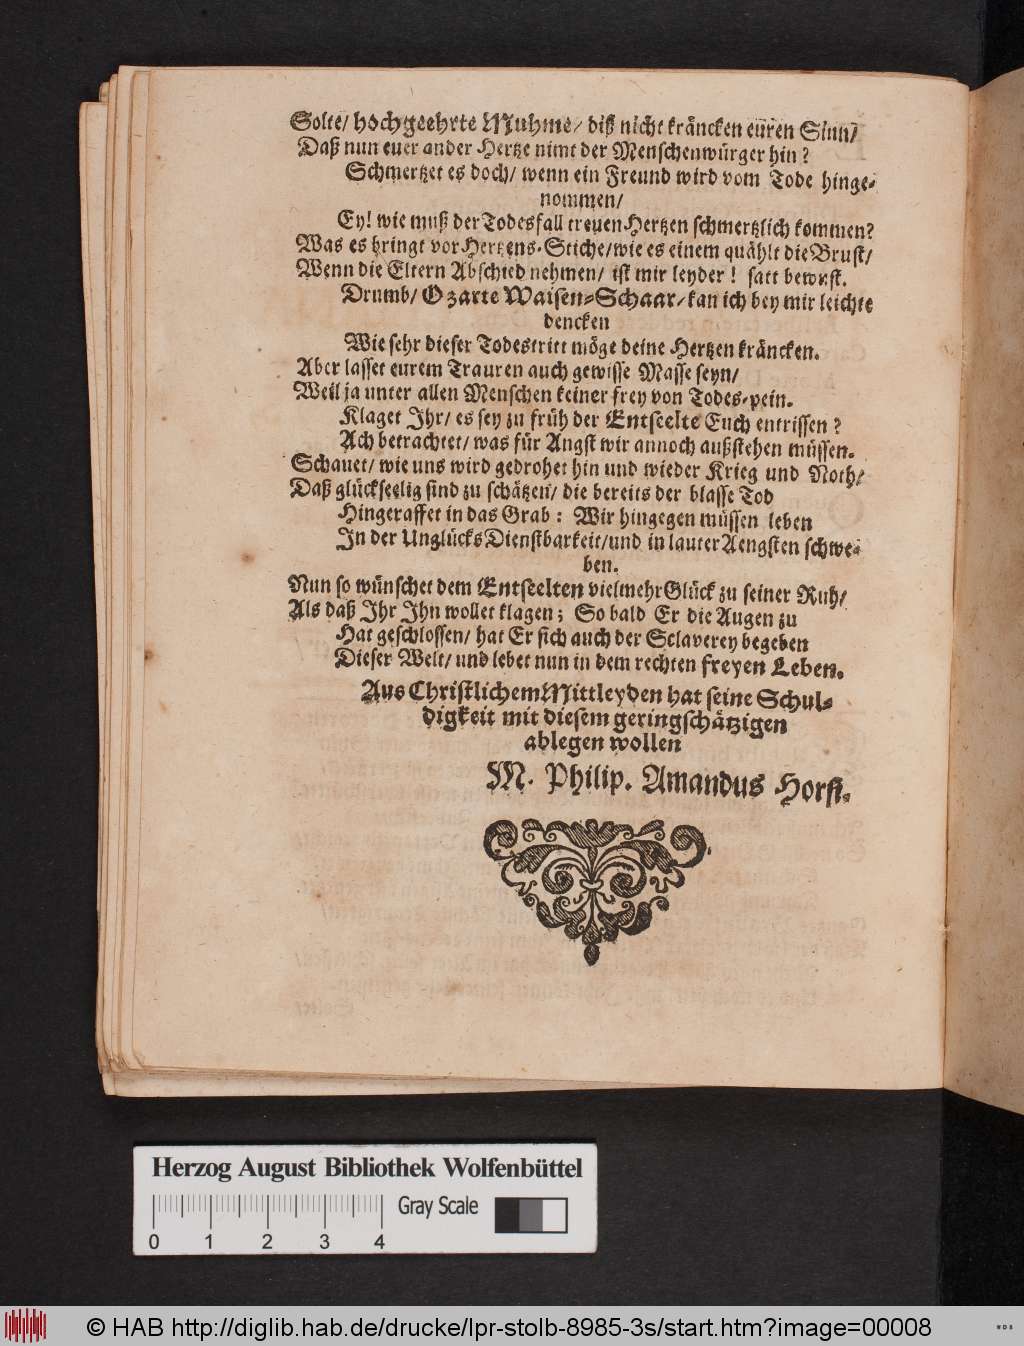 Solte/ hochgeehrte Muhme/ diß nicht kräncken euren Sinn/
Daß nun euer ander Hertze nimt der Menschenwürger hin?
Schmertzet es doch/ wenn ein Freund wird vom Tode hinge-
nommen/
Ey! wie muß der Todesfall treuen Hertzen schmertzlich kommen?
Was es bringt vor Hertzens-Stiche/ wie es einem quählt die Brust/
Wenn die Eltern Abschied nehmen/ ist mir leyder! satt bewust.
Drumb/ O zarte Waisen-Schaar/ kan ich bey mir leichte
dencken
Wie sehr dieser Todestritt möge deine Hertzen kräncken.
Aber lasset eurem Trauren auch gewisse Masse seyn/
Weil ja unter allen Menschen keiner frey von Todes-pein.
Klaget Ihr/ es sey zu früh der Entseelte Euch entrissen?
Ach betrachtet/ was für Angst wir annoch außstehen müssen.
Schauet/ wie uns wird gedrohet hin und wieder Krieg und Noth/
Daß glückseelig sind zu schätzen/ die bereits der blasse Tod
Hingeraffet in das Grab: Wir hingegen müssen leben
In der Unglücks Dienstbarkeit/ und in lauter Aengsten schwe-
ben.
Nun so wünschet dem Entseelten vielmehr Glück zu seiner Ruh/
Als daß Ihr Ihn wollet klagen; So bald Er die Augen zu
Hat geschlossen/ hat Er sich auch der Sclaverey begeben
Dieser Welt/ und lebet nun in dem rechten freyen Leben.
Aus Christlichem Mittleyden hat seine Schul-
digkeit mit diesem geringschätzigen
ablegen wollen
M. Philip. Amandus Horst.
Herzog August Bibliothek Wolfenbüttel
Gray Scale
0 1 2 3 4
© HAB http://diglib.hab.de/drucke/lpr-stolb-8985-3s/start.htm?image=00008